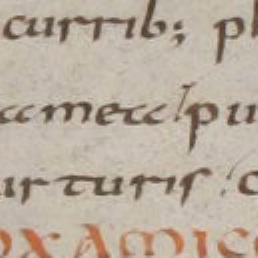 currib; pl
ameca pu
ur turris c
OXAMIC